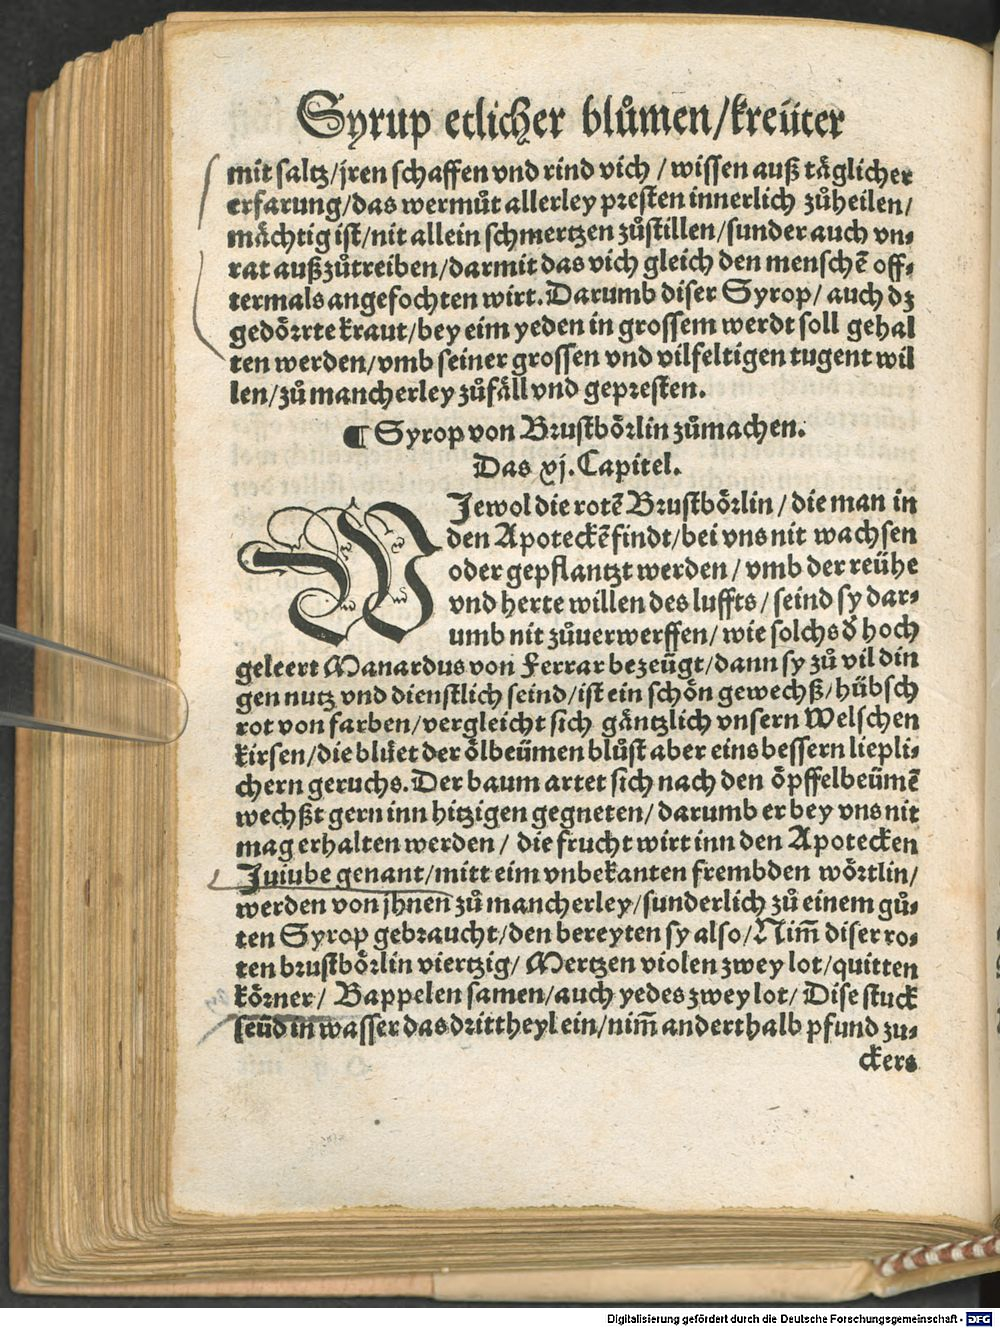 Syrup etlicher blůmen/kreüter
mit saltz/jren schaffen vnd rind vich / wissen auß täglicher
erfarung/das wermůt allerley presten innerlich zůheilen/
mächtig ist/nit allein schmertzen zůstillen/sunder auch vn⸗
rat außzůtreiben/darmit das vich gleich den menschē off⸗
termals angefochten wirt. Darumb diser Syrop/ auch dz
gedörrte kraut/bey eim yeden in grossem werdt soll gehal
ten werden/vmb seiner grossen vnd vilfeltigen tugent wil
len/zů mancherley zůfäll vnd gepresten.
¶ Syrop von Brustbörlin zůmachen.
Das xj. Capitel.
WJewol die rotē Brustbörlin / die man in
den Apoteckē findt/bei vns nit wachsen
oder gepflantzt werden / vmb der reühe
vnd herte willen des luffts / seind sy dar⸗
umb nit zůuerwerffen/ wie solchs d̕ hoch
geleert Manardus von Ferrar bezeügt/dann sy zů vil din
gen nutz vnd dienstlich seind/ist ein schön gewechß/hübsch
rot von farben/vergleicht sich gäntzlich vnsern Welschen
kirsen/die blüet der ölbeümen blůst aber eins bessern liepli⸗
chern geruchs. Der baum artet sich nach den öpffelbeümē
wechßt gern inn hitzigen gegneten/ darumb er bey vns nit
mag erhalten werden / die frucht wirt inn den Apotecken
Juiube genant/mitt eim vnbekanten frembden wörtlin/
werden von jhnen zů mancherley/sunderlich zů einem gů⸗
ten Syrop gebraucht/den bereyten sy also/Nim̄ diser ro⸗
ten brustbörlin viertzig/ Mertzen violen zwey lot/quitten
körner/ Bappelen samen/auch yedes zwey lot/ Dise stuck
seüd in wasser das drittheyl ein/nim̄ anderthalb pfund zu⸗
ckers
Digitalisierung gefördert durch die Deutsche Forschungsgemeinschaft - DFG